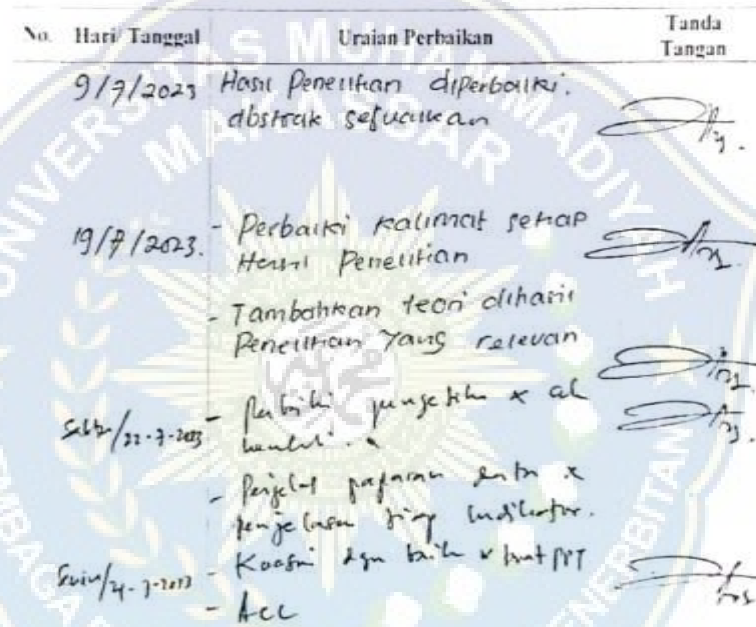 No. Hari/Tanggal Uraian Perbaikan Tanda Tangan
9/7/2023 Hasil Penelitian diperbaiki.
abstrak sesuaikan
19/7/2023. - Perbaiki kalimat setiap
Hasil Penelitian
- Tambahkan teori dihasil
Penelitian Yang relevan
Sabtu/22-7-2023 - Perbaiki pengetikan
- Perjelas paparan data &
penjelasan tiap indikator.
Senin/24-7-2023 - Koreksi dgn baik & buat PPT
- Acc
UNIVERSITAS MUHAMMADIYAH
MAKASSAR
LEMBAGA
PENERBITAN